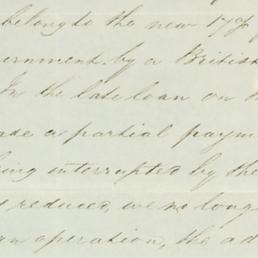 belong to the new
ernment by a British
In the late loan on
ade a partial paym
ing interrupted by the
reduced, we no long
an operation, the ad